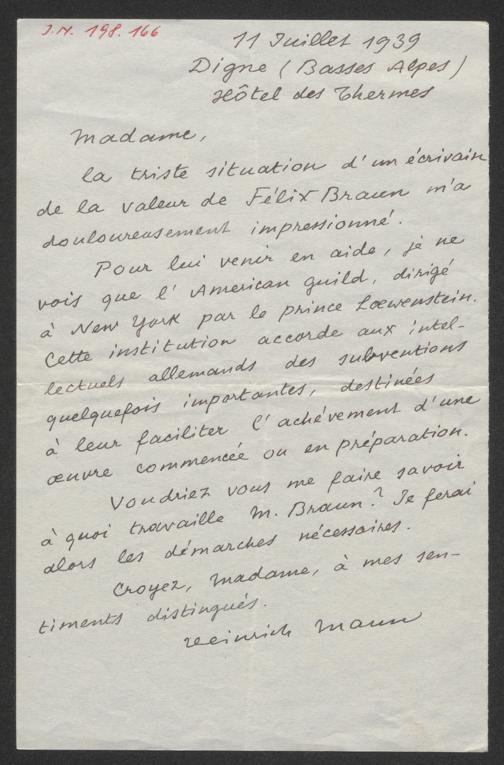 I.N. 198.166
11 Juillet 1939
Digne (Basses Alpes)
Hôtel des Thermes
Madame,
la triste situation d'un écrivain
de la valeur de Félix Braun m'a
douloureusement impressionné.
Pour lui venir en aide, je ne
vois que l'American guild, dirigé
à New York par le prince Loewenstein.
Cette institution accorde aux intel-
lectuels allemands des subventions
quelquefois importantes, destinées
à leur faciliter l'achévement d'une
œuvre commencée ou en préparation.
Voudriez vous me faire savoir
à quoi travaille M. Braun? Je ferai
alors les démarches nécessaires.
Croyez, Madame, à mes sen-
timents distingués.
Heinrich Mann